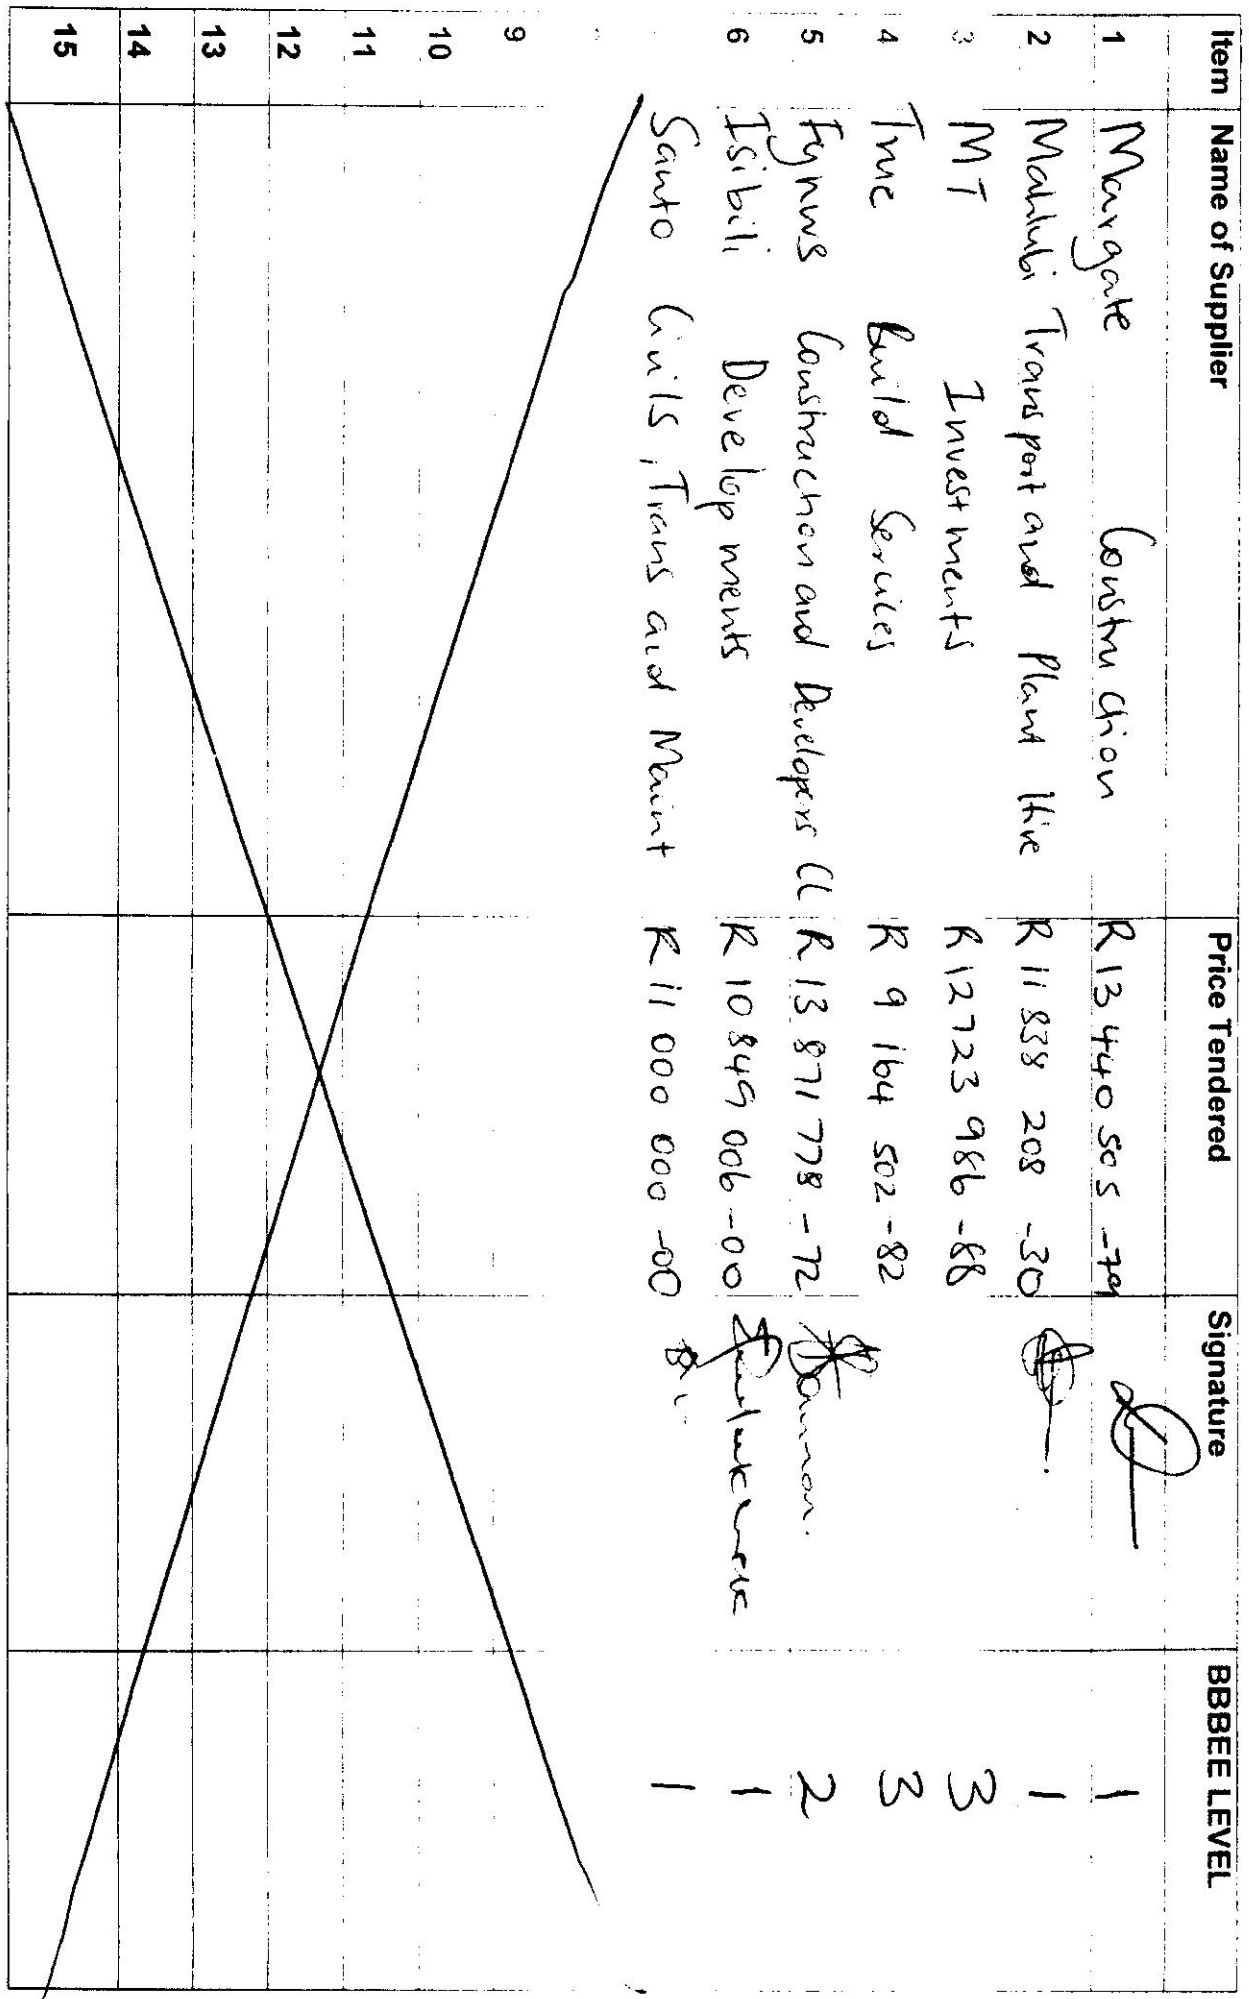 Item Name of Supplier Price Tendered Signature BBBEE LEVEL
1 Margate Construction R 13 440 505 -79 1
2 Mahlubi Transport and Plant Hire R 11 838 208 -30 1
3 MT Investments R 12 723 986 -88 3
4 True Build Services R 9 164 502 -82 3
5 Fynns Construction and Developers CC R 13 871 778 -72 2
6 Isibili Developments R 10 849 006 -00 1
Santo Civils, Trans and Maint R 11 000 000 -00 1
9
10
11
12
13
14
15